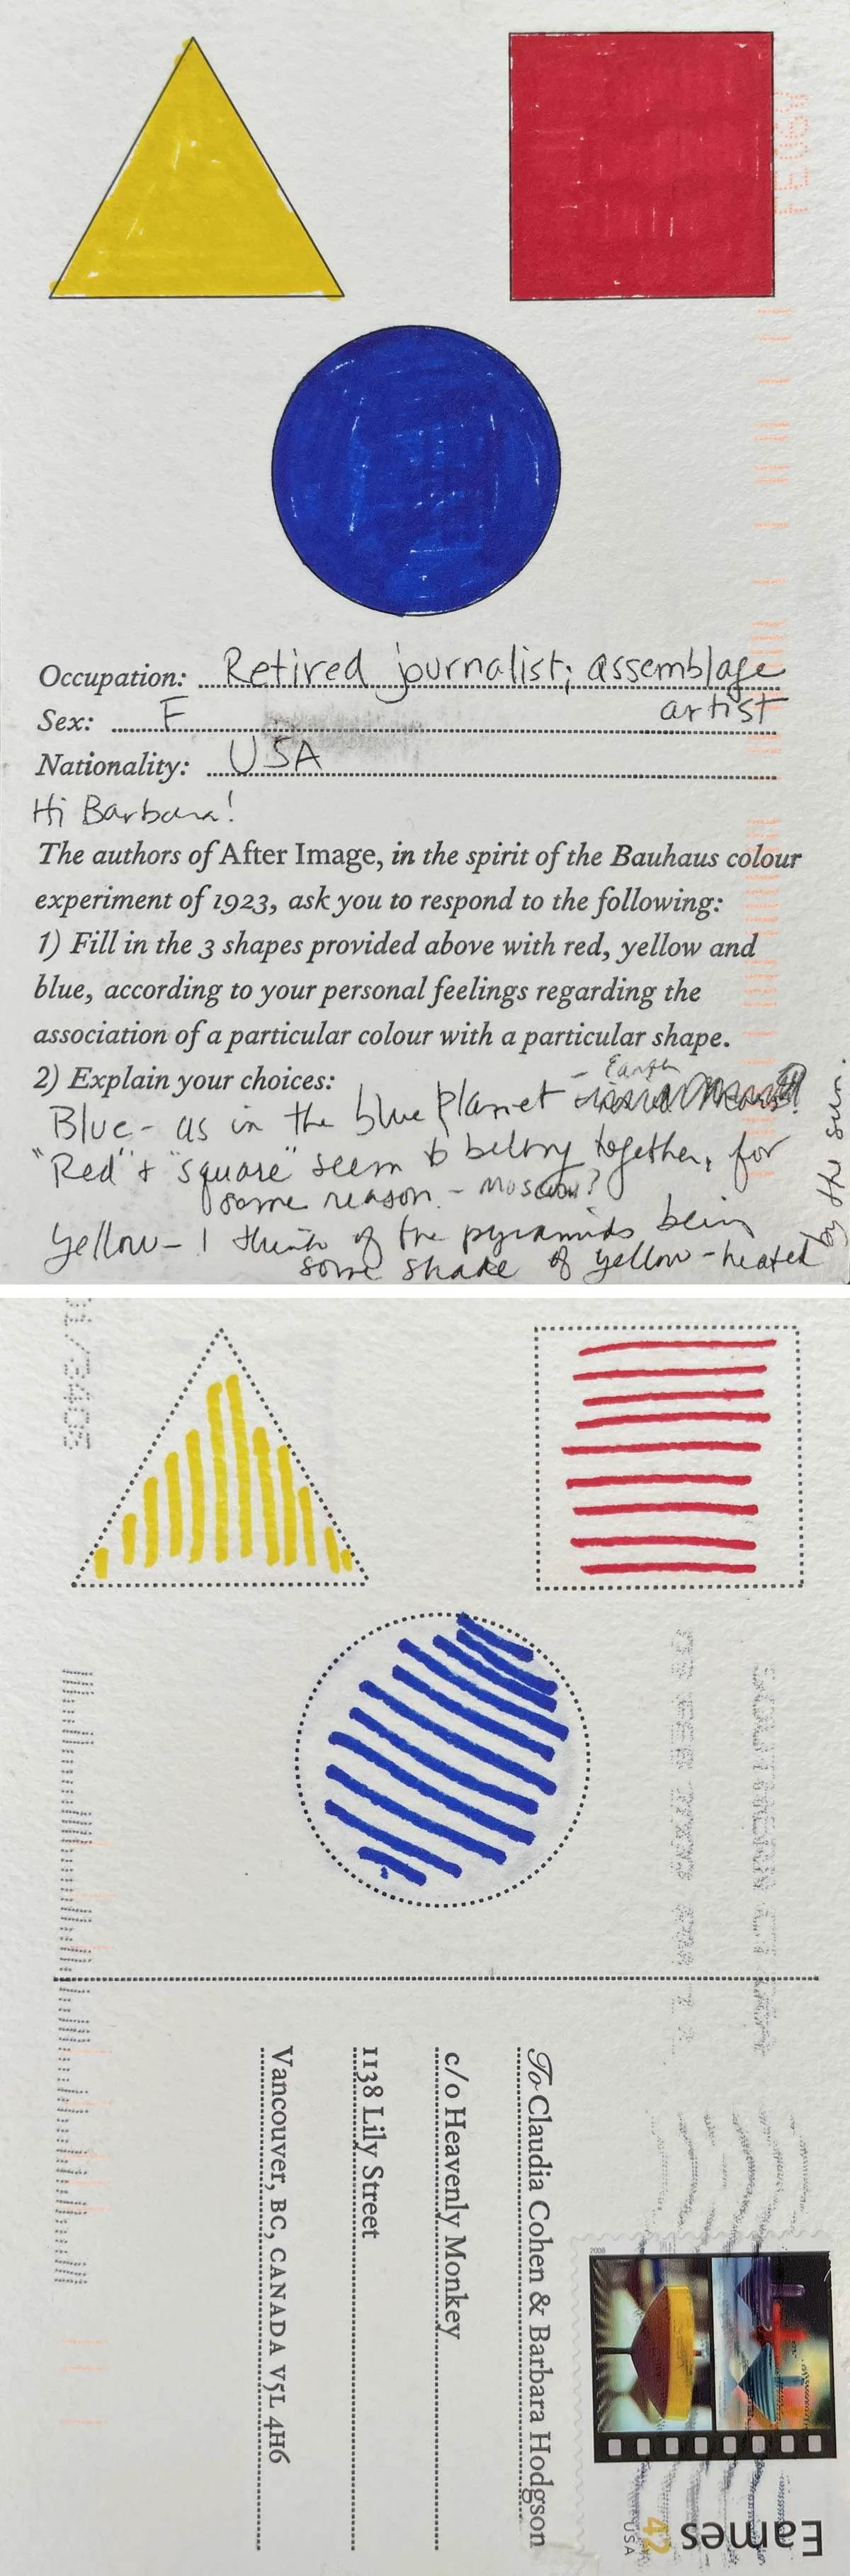 Occupation: Retired journalist; assemblage
artist
Sex: F
Nationality: USA
Hi Barbara!
The authors of After Image, in the spirit of the Bauhaus colour
experiment of 1923, ask you to respond to the following:
1) Fill in the 3 shapes provided above with red, yellow and
blue, according to your personal feelings regarding the
association of a particular colour with a particular shape.
2) Explain your choices:
Blue - as in the blue planet - Earth
"Red" + "square" seem to belong together, for
some reason. - Moscow?
Yellow - I think of the pyramids being
some shade of yellow - heated
by the sun.
To Claudia Cohen & Barbara Hodgson
c/o Heavenly Monkey
1138 Lily Street
Vancouver, BC, CANADA V5L 4H6
2008
Eames
42
USA
SOUTHERN CT